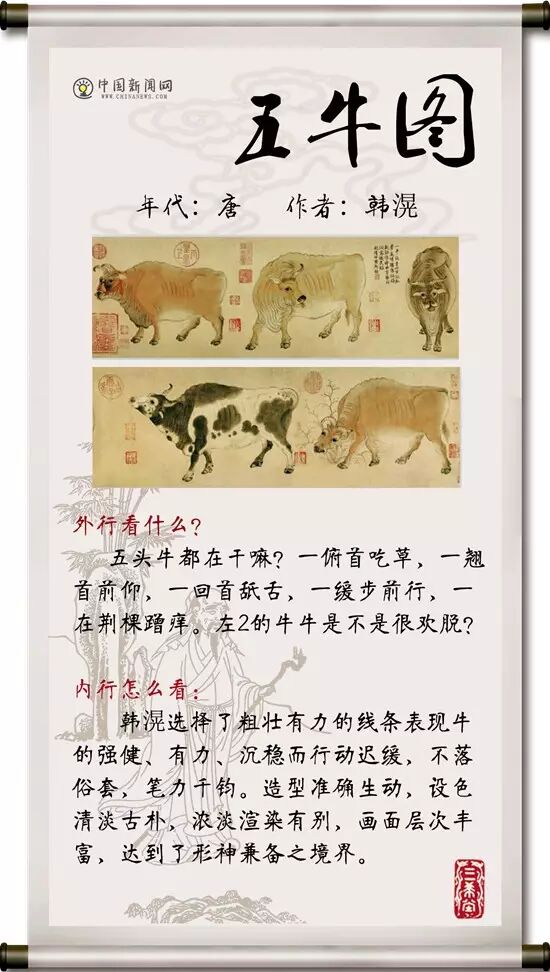 中国新闻网
WWW.CHINANEWS.COM
五牛图
年代：唐 作者：韩滉
外行看什么？
五头牛都在干嘛？一俯首吃草，一翘
首前仰，一回首舐舌，一缓步前行，一
在荆棵蹭痒。左2的牛牛是不是很欢脱？
内行怎么看：
韩滉选择了粗壮有力的线条表现牛
的强健、有力、沉稳而行动迟缓，不落
俗套，笔力千钧。造型准确生动，设色
清淡古朴，浓淡渲染有别，画面层次丰
富，达到了形神兼备之境界。